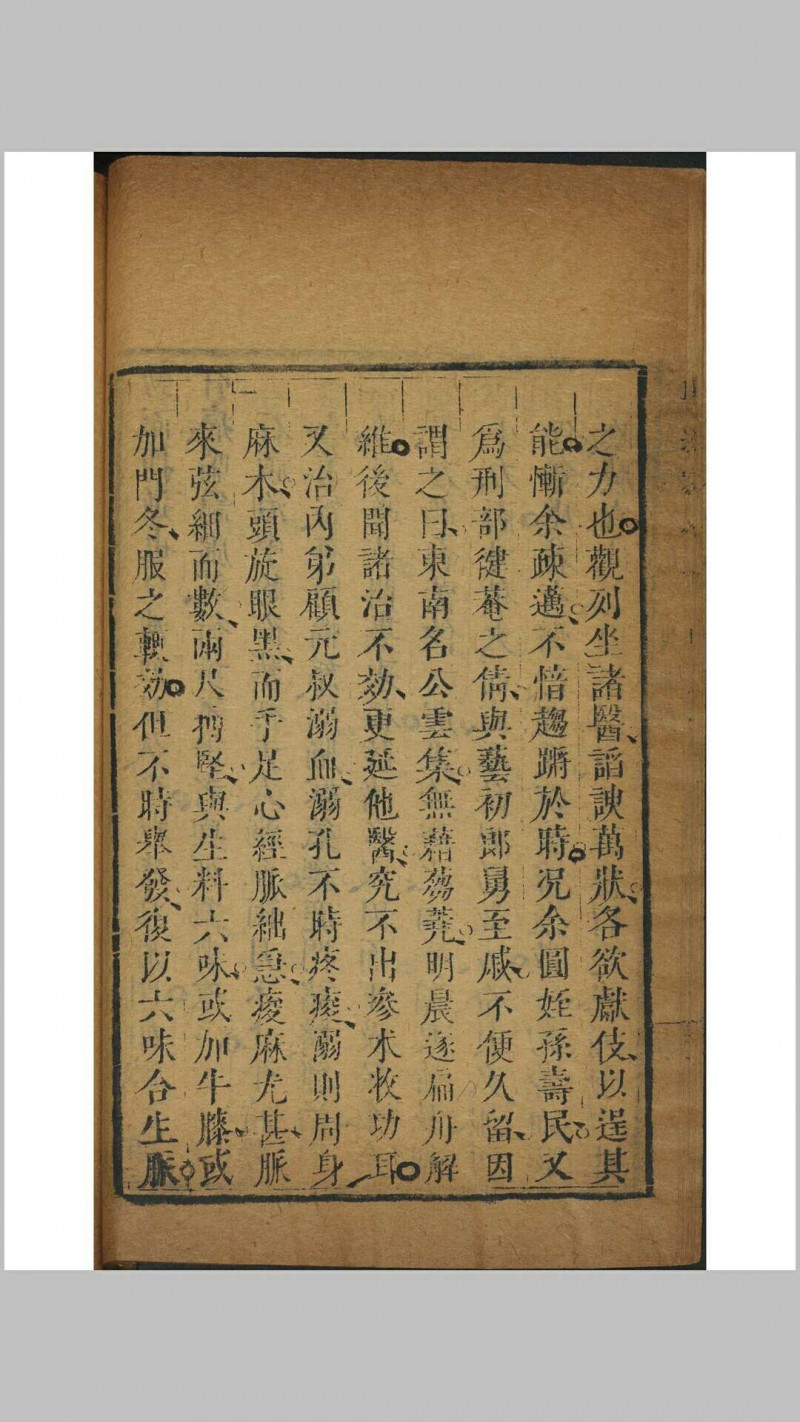 之力也觀列坐諸醫謟諛萬狀各欲獻伎以逞其
能慚余疎邁不愔趨蹡於時况余圓姪孫壽民又
爲刑部健菴之倩與藝初郎舅至戚不便久留因
謂之曰東南名公雲集無藉蒭蕘明晨遂扁舟解
維後聞諸治不効更延他醫究不出參朮收功耳
又治內弟顧元叔溺血溺孔不時疼痠溺則周身
麻木頭旋眼黑而手足心經脈絀急痠麻尤甚脈
來弦細而數兩尺搏堅與生料六味或加牛膝或
加門冬服之輙効但不時舉發復以六味合生脈